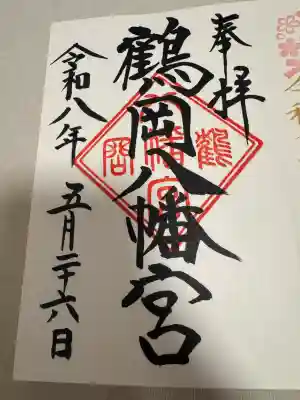 奉拝
鶴岡八幡宮
令和八年 五月二十六日